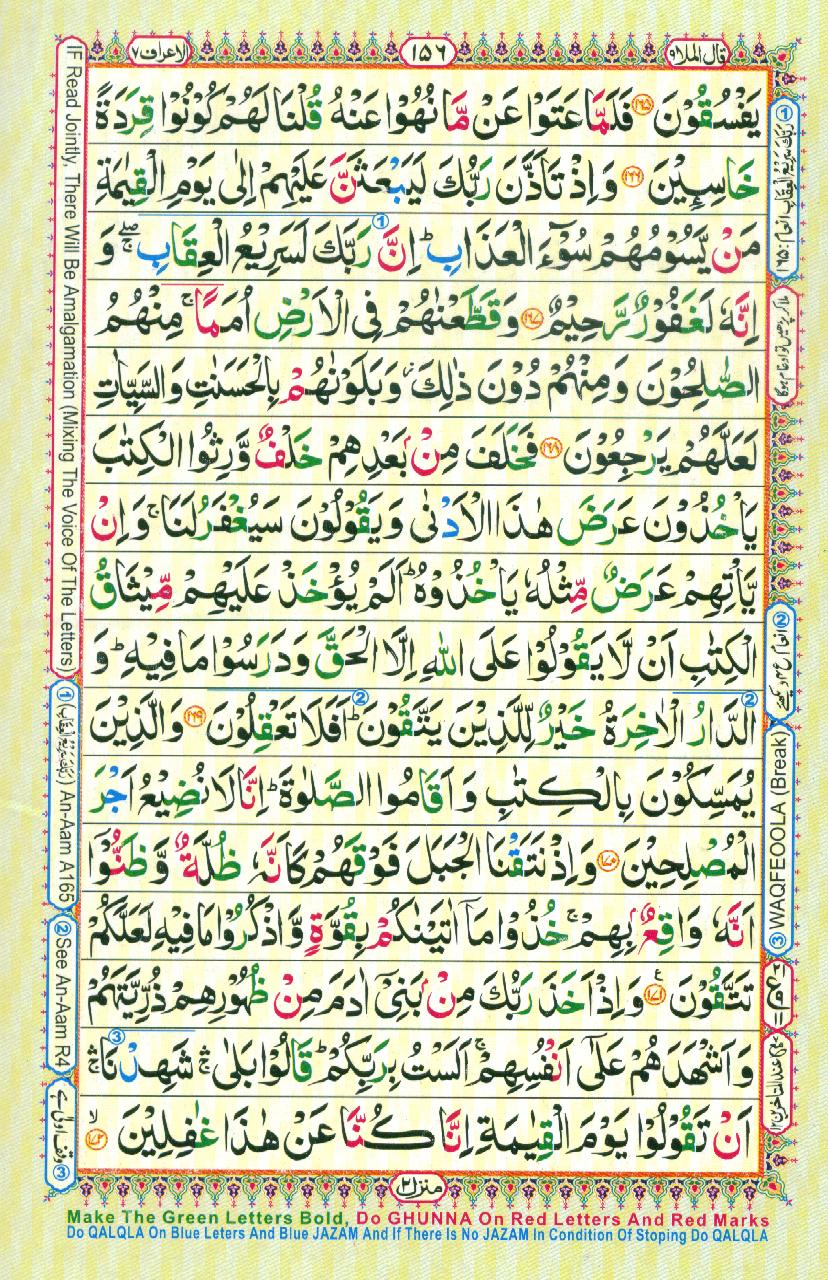 قال الملا ٩
١٥٦
الاعراف ٧
يَفْسُقُوْنَ ﴿١٦٥﴾ فَلَمَّا عَتَوْا عَنْ مَّا نُهُوْا عَنْهُ قُلْنَا لَهُمْ كُوْنُوْا قِرَدَةً
خَاسِئِيْنَ ﴿١٦٦﴾ وَاِذْ تَاَذَّنَ رَبُّكَ لَيَبْعَثَنَّ عَلَيْهِمْ اِلٰى يَوْمِ الْقِيٰمَةِ
مَنْ يَّسُوْمُهُمْ سُوْٓءَ الْعَذَابِ ؕ اِنَّ رَبَّكَ لَسَرِيْعُ الْعِقَابِ ۖۚ وَ
اِنَّهٗ لَغَفُوْرٌ رَّحِيْمٌ ﴿١٦٧﴾ وَقَطَّعْنٰهُمْ فِى الْاَرْضِ اُمَمًا ۚ مِنْهُمُ
الصّٰلِحُوْنَ وَمِنْهُمْ دُوْنَ ذٰلِكَ ؗ وَبَلَوْنٰهُمْ بِالْحَسَنٰتِ وَالسَّيِّاٰتِ
لَعَلَّهُمْ يَرْجِعُوْنَ ﴿١٦٨﴾ فَخَلَفَ مِنْۢ بَعْدِهِمْ خَلْفٌ وَّرِثُوا الْكِتٰبَ
يَاْخُذُوْنَ عَرَضَ هٰذَا الْاَدْنٰى وَيَقُوْلُوْنَ سَيُغْفَرُ لَنَا ۚ وَاِنْ
يَّاْتِهِمْ عَرَضٌ مِّثْلُهٗ يَاْخُذُوْهُ ؕ اَلَمْ يُؤْخَذْ عَلَيْهِمْ مِّيْثَاقُ
الْكِتٰبِ اَنْ لَّا يَقُوْلُوْا عَلَى اللّٰهِ اِلَّا الْحَقَّ وَدَرَسُوْا مَا فِيْهِ ؕ وَ
الدَّارُ الْاٰخِرَةُ خَيْرٌ لِّلَّذِيْنَ يَتَّقُوْنَ ؕ اَفَلَا تَعْقِلُوْنَ ﴿١٦٩﴾ وَالَّذِيْنَ
يُمَسِّكُوْنَ بِالْكِتٰبِ وَاَقَامُوا الصَّلٰوةَ ؕ اِنَّا لَا نُضِيْعُ اَجْرَ
الْمُصْلِحِيْنَ ﴿١٧٠﴾ وَاِذْ نَتَقْنَا الْجَبَلَ فَوْقَهُمْ كَاَنَّهٗ ظُلَّةٌ وَّظَنُّوْۤا
اَنَّهٗ وَاقِعٌۢ بِهِمْ ۚ خُذُوْا مَاۤ اٰتَيْنٰكُمْ بِقُوَّةٍ وَّاذْكُرُوْا مَا فِيْهِ لَعَلَّكُمْ
تَتَّقُوْنَ ﴿١٧١﴾ وَاِذْ اَخَذَ رَبُّكَ مِنْۢ بَنِىْۤ اٰدَمَ مِنْ ظُهُوْرِهِمْ ذُرِّيَّتَهُمْ
وَاَشْهَدَهُمْ عَلٰٓى اَنْفُسِهِمْ ۚ اَلَسْتُ بِرَبِّكُمْ ؕ قَالُوْا بَلٰى ۛۚ شَهِدْنَا ۛۚ
اَنْ تَقُوْلُوْا يَوْمَ الْقِيٰمَةِ اِنَّا كُنَّا عَنْ هٰذَا غٰفِلِيْنَ ﴿١٧٢﴾
منزل ٢
IF Read Jointly, There Will Be Amalgamation (Mixing The Voice Of The Letters)
① An-Aam A165
② See An-Aam R4
وقف اولیٰ ہے ③
③ WAQFEOOLA (Break)
Make The Green Letters Bold, Do GHUNNA On Red Letters And Red Marks
Do QALQLA On Blue Leters And Blue JAZAM And If There Is No JAZAM In Condition Of Stoping Do QALQLA